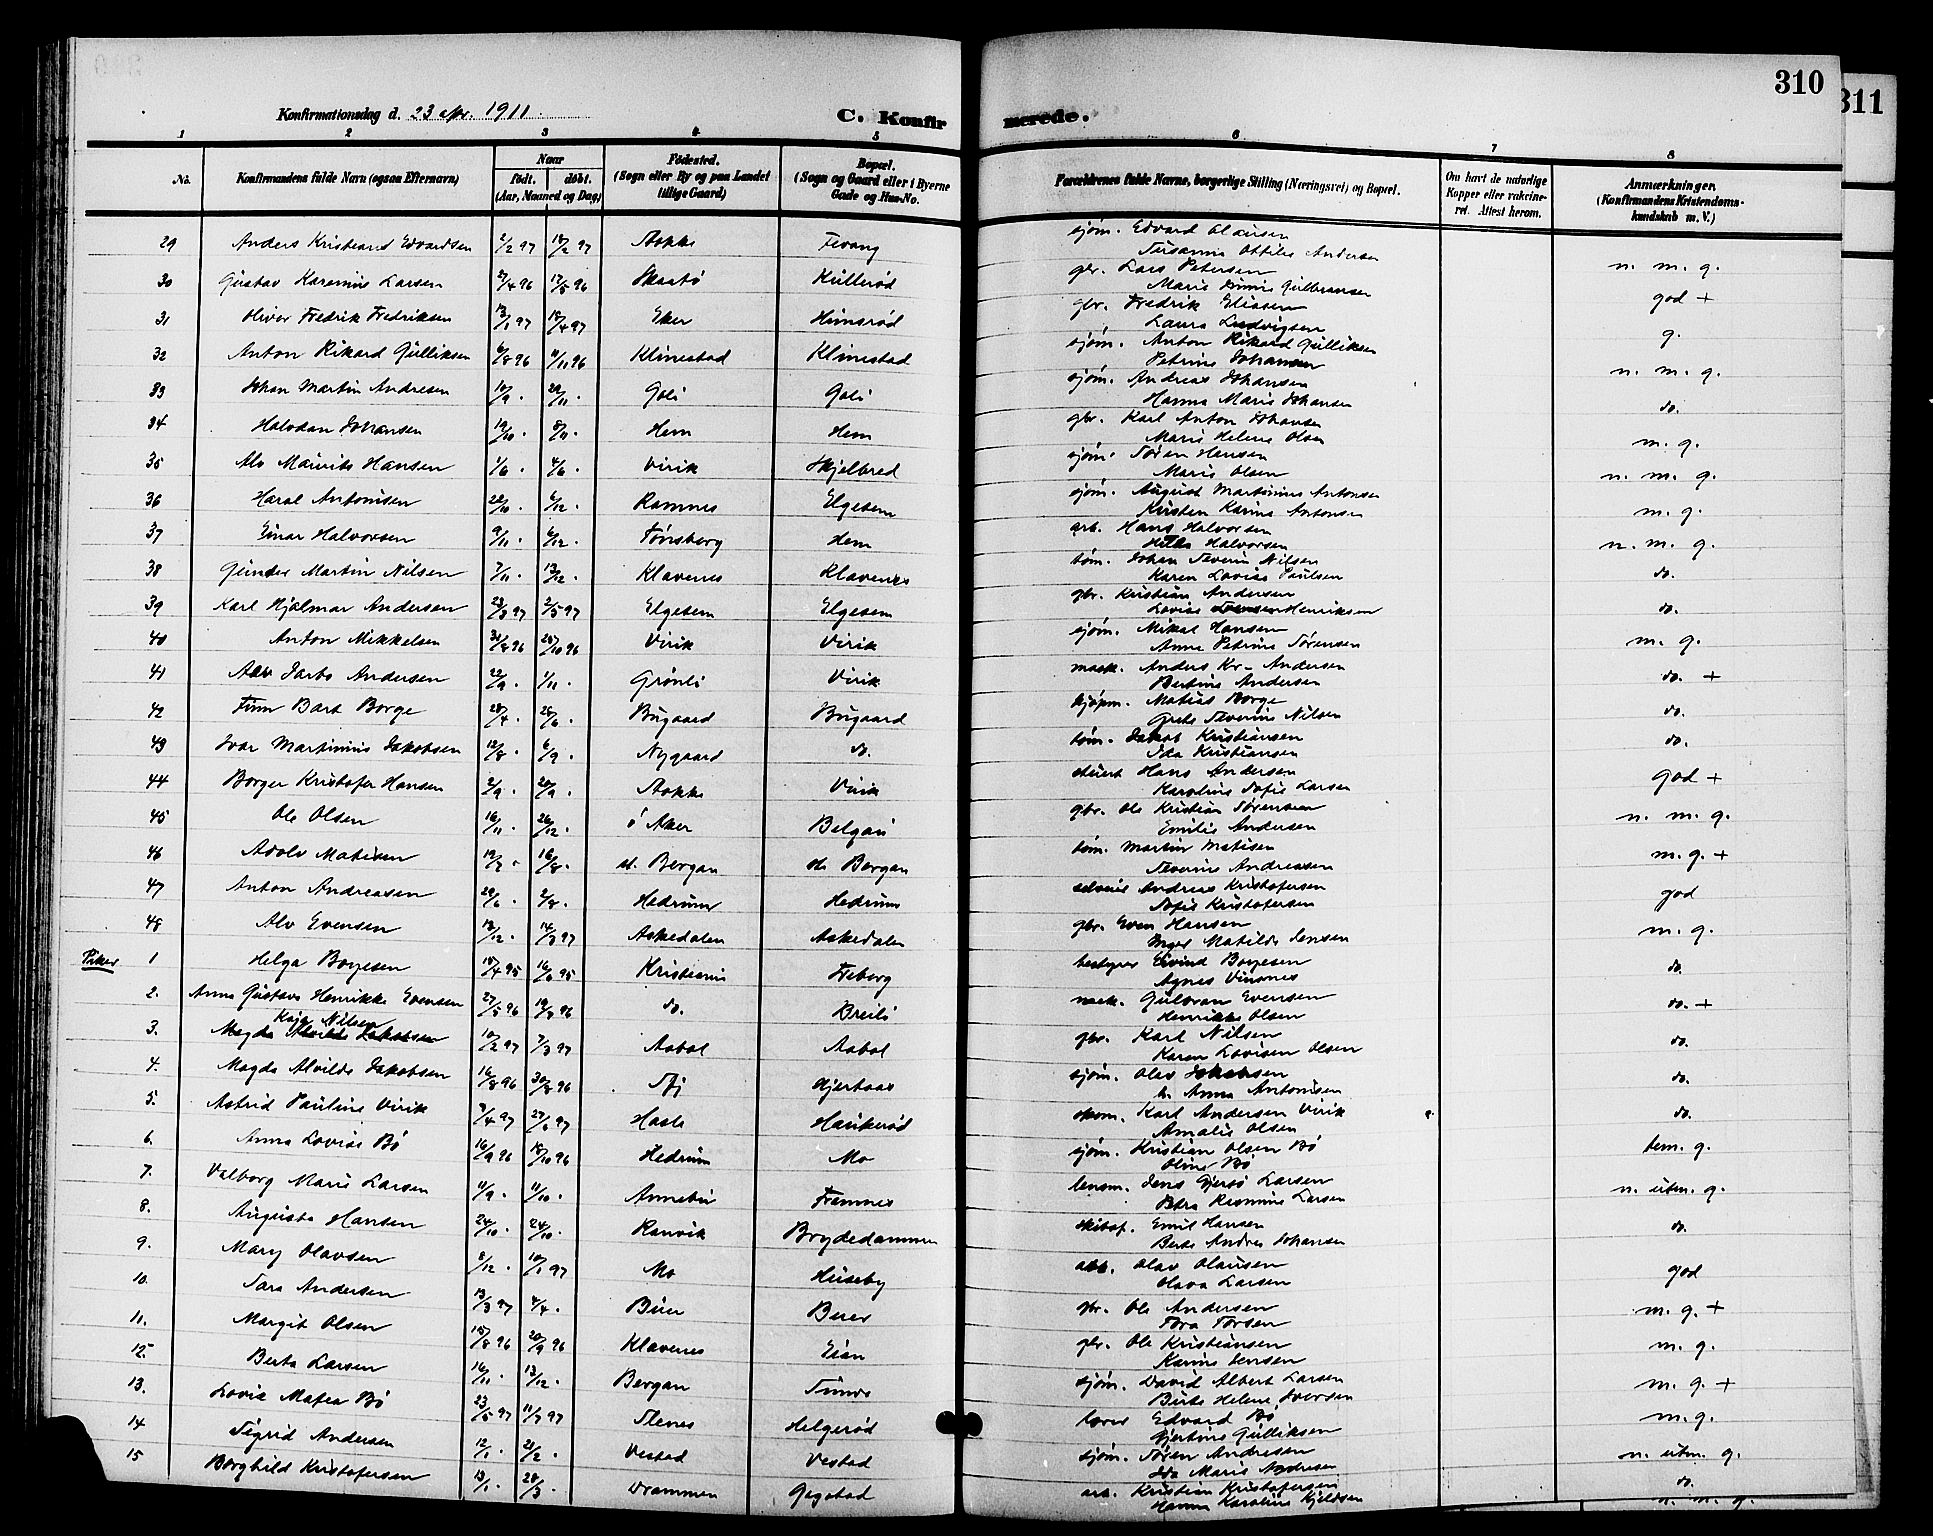 310
311
Konfirmationsdag d. 23 apr. 1911.
C. Konfirmerede.
1 2 3 4 5 6 7 8
No. Konfirmandens fulde Navn (ogsaa Efternavn) Naar født. døbt. (Aar, Maaned og Dag) Fødested. (Sogn eller By og paa Landet tillige Gaard) Bopæl. (Sogn og Gaard eller i Byerne Gade og Hus-No. Forældrenes fulde Navne, borgerlige Stilling (Næringsvei) og Bopæl. Om havt de naturlige Kopper eller vakcineret. Attest herom. Anmærkninger. (Konfirmandens Kristendomskundskab m. V.)
29 Anders Kristiand Edvardsen 2/2 97 18/2 97 Aokke Fevang sjöm. Edvard Olausen
Susanna Ottilie Andersen n. m. g.
30 Gustav Karenius Larsen 27/4 96 17/5 96 Skaatö Kullerød gbr. Lars Petersen
Marie Gulbransen god +
31 Oliver Fredrik Fredriksen 13/1 97 18/4 97 Eker Himsrød gbr. Fredrik Eliasen
Laura Ludvigsen g.
32 Anton Rikard Gulliksen 6/8 96 11/11 96 Klinestad Klinestad sjöm. Anton Rikard Gulliksen
Petrine Johansen n. m. g.
33 Johan Martin Andresen 10/9 . 29/11 . Goli Goli sjöm. Andreas Johansen
Hanna Marie Johansen do.
34 Halvdan Johansen 19/10 . 8/11 . Hem Hem gbr. Karl Anton Johansen
Marie Helene Olsen m. g.
35 Alv Mauritz Hansen 1/6 . 4/6 . Virik Skjelbred sjöm. Sören Hansen
Marie Olsen n. m. g.
36 Haral Antonisen 22/10 . 6/12 . Ramnes Elgesem sjöm. August Martinius Antonsen
Kirsten Karina Antonsen m. g.
37 Einar Halvorsen 9/11 . 6/12 . Tønsberg Hem arb. Hans Halvorsen
Hilda Halvorsen n. m. g.
38 Gunder Martin Nilsen 7/11 . 13/12 . Klavenes Klavenes töm. Johan Severin Nilsen
Karen Lovise Paulsen do.
39 Karl Hjalmar Andersen 23/3 97 2/5 97 Elgesem Elgesem gbr. Kristian Andersen
Lovise Henriksen do.
40 Anton Mikkelsen 31/8 96 25/10 96 Virik Virik sjöm. Mikal Hansen
Anne Petrine Sörensen m. g.
41 Alv Jarbo Andersen 22/9 . 1/11 . Grönli Virik mask. Anders Kr. Andersen
Bertine Andersen do. +
42 Finn Bart Borge 28/4 . 28/6 . Bugaard Bugaard kjöpm. Matias Borge
Grete Severine Nilsen do.
43 Ivar Martinius Jakobsen 12/8 . 6/9 . Nygaard do. töm. Jakob Kristiansen
Ida Kristiansen do.
44 Borger Kristofer Hansen 2/9 . 20/9 . Aokke Virik stuert Hans Andersen
Karoline Sofie Larsen god +
45 Ole Olsen 16/11 . 26/12 . ö Aker Belgau gbr. Ole Kristian Sörensen
Emilie Andersen n. m. g.
46 Adolv Matisen 19/7 . 16/8 . st. Bergan st. Bergan töm. Martin Matisen
Severine Andreasen m. g. +
47 Anton Andreasen 29/6 . 2/8 . Hedrum Hedrum Andreas Kristofersen
Sofie Kristofersen god
48 Alv Evensen 13/12 . 14/3 97 Askedalen Askedalen gbr. Even Hansen
Inger Matilde Jensen m. g.
Piker 1 Helga Boyesen 18/4 95 16/6 95 Kristiania Freberg bestyrer Eivind Boyesen
Agnes Vinsnes do.
2. Anna Gustava Henrikke Evensen 27/5 96 19/7 96 do. Breili mask. Gulbran Evensen
Henrikke Olsen do. +
3. Magda Kaja Nilsen 10/2 97 7/3 97 Aabol Aabol gbr. Karl Nilsen
Karen Lovisen Olsen do.
4. Magda Alvilde Jakobsen 16/8 96 30/8 96 Sfj Hjertaas sjöm. Olav Jakobsen
h. Anna Antonisen do.
5. Astrid Pauline Virik 7/4 97 27/6 97 Hasle Haukerød skom. Karl Andersen Virik
Amalie Olsen do.
6. Anna Lovise Bö 16/9 96 18/10 96 Hedrum Mo sjöm. Kristian Olsen Bö
Oline Bö tem. g.
7. Valborg Marie Larsen 11/9 . 11/10 . Annebu Framnes lensm. Jens Gjersö Larsen
Petra Rasmine Larsen n. utm. g.
8. Augusta Hansen 24/10 . 24/10 . Ranvik Brydedammen skibsf. Emil Hansen
Berte Andrea Johansen do.
9. Mary Olavsen 8/12 . 10/1 97 Mo Huseby arb. Olav Olausen
Olava Larsen god
10. Sara Andersen 13/3 97 4/4 . Buer Buer gbr. Ole Andersen
Tora Torsen m. g. +
11. Margit Olsen 18/8 96 20/9 96 Klavenes Eian gbr. Ole Kristiansen
Karine Jensen m. g.
12. Berta Larsen 16/11 . 13/12 . Bergan Sunde sjöm. David Albert Larsen
Berte Helene Iversen m. g. +
13. Lovise Matea Bö 23/5 97 11/7 97 Stenes Helgerød lærer Edvard Bö
Gjertine Gulliksen m. g.
14 Sigrid Andersen 12/1 . 21/2 . Vestad Vestad sjöm. Sören Andresen
Ida Marie Andresen n. utm. g.
15 Borghild Kristofersen 13/1 . 28/3 . Drammen Gogstad arb. Kristian Kristofersen
Hanna Karoline Kjeldsen do.
n. m. g.